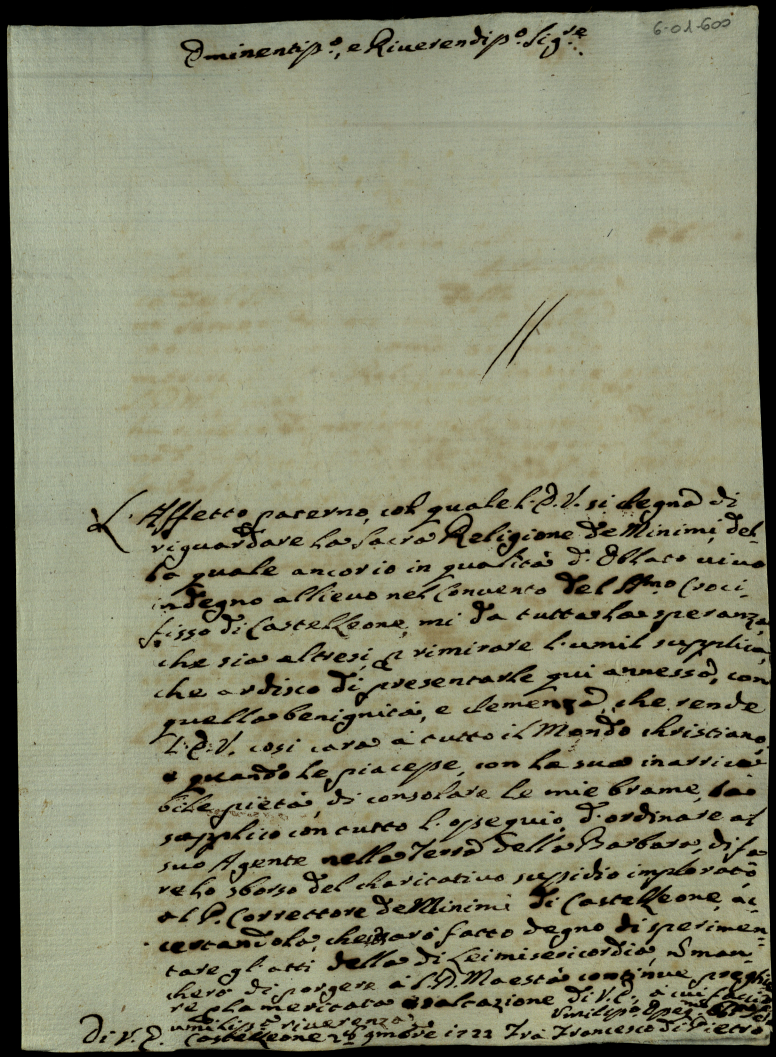 6-01-600
Eminentis.o, e Riverendis.o Sig.re
L'Affetto paterno, col quale l'E.V. si degna di
riguardare la Sacra Religione de Minimi, del-
la quale ancor io in qualità d'Oblato vivo
indegno allievo nel Convento del SS.mo Croci-
fisso di Castelleone, mi da tutta la speranza,
che sia altresì p rimirare l'umil supplica,
che ardisco di presentarle qui annessa, con
quella benignità, e clemenza, che rende
l'E.V. così cara à tutto il Mondo christiano,
e quando le piacesse, con la sua inarriva-
bile pietà, di consolare le mie brame, la
supplico con tutto l'ossequio, d'ordinare al
suo Agente nella Terra della Barbara, di fa-
re lo sborso del charitativo sussidio implorato
al P. Correttore de Minimi di Castelleone, ac-
certandola, che sarò fatto degno di sperimen-
tare gl'atti della di Lei misericordia, n man-
cherò di porgere à S.D. Maestà continue preghie-
re p la meritata esaltazione di V.E., à cui faccio
umilissa riverenza
Di V.E. Umilis.o
Castelleone 28 9mbre 1722 Fra Francesco di Pietro